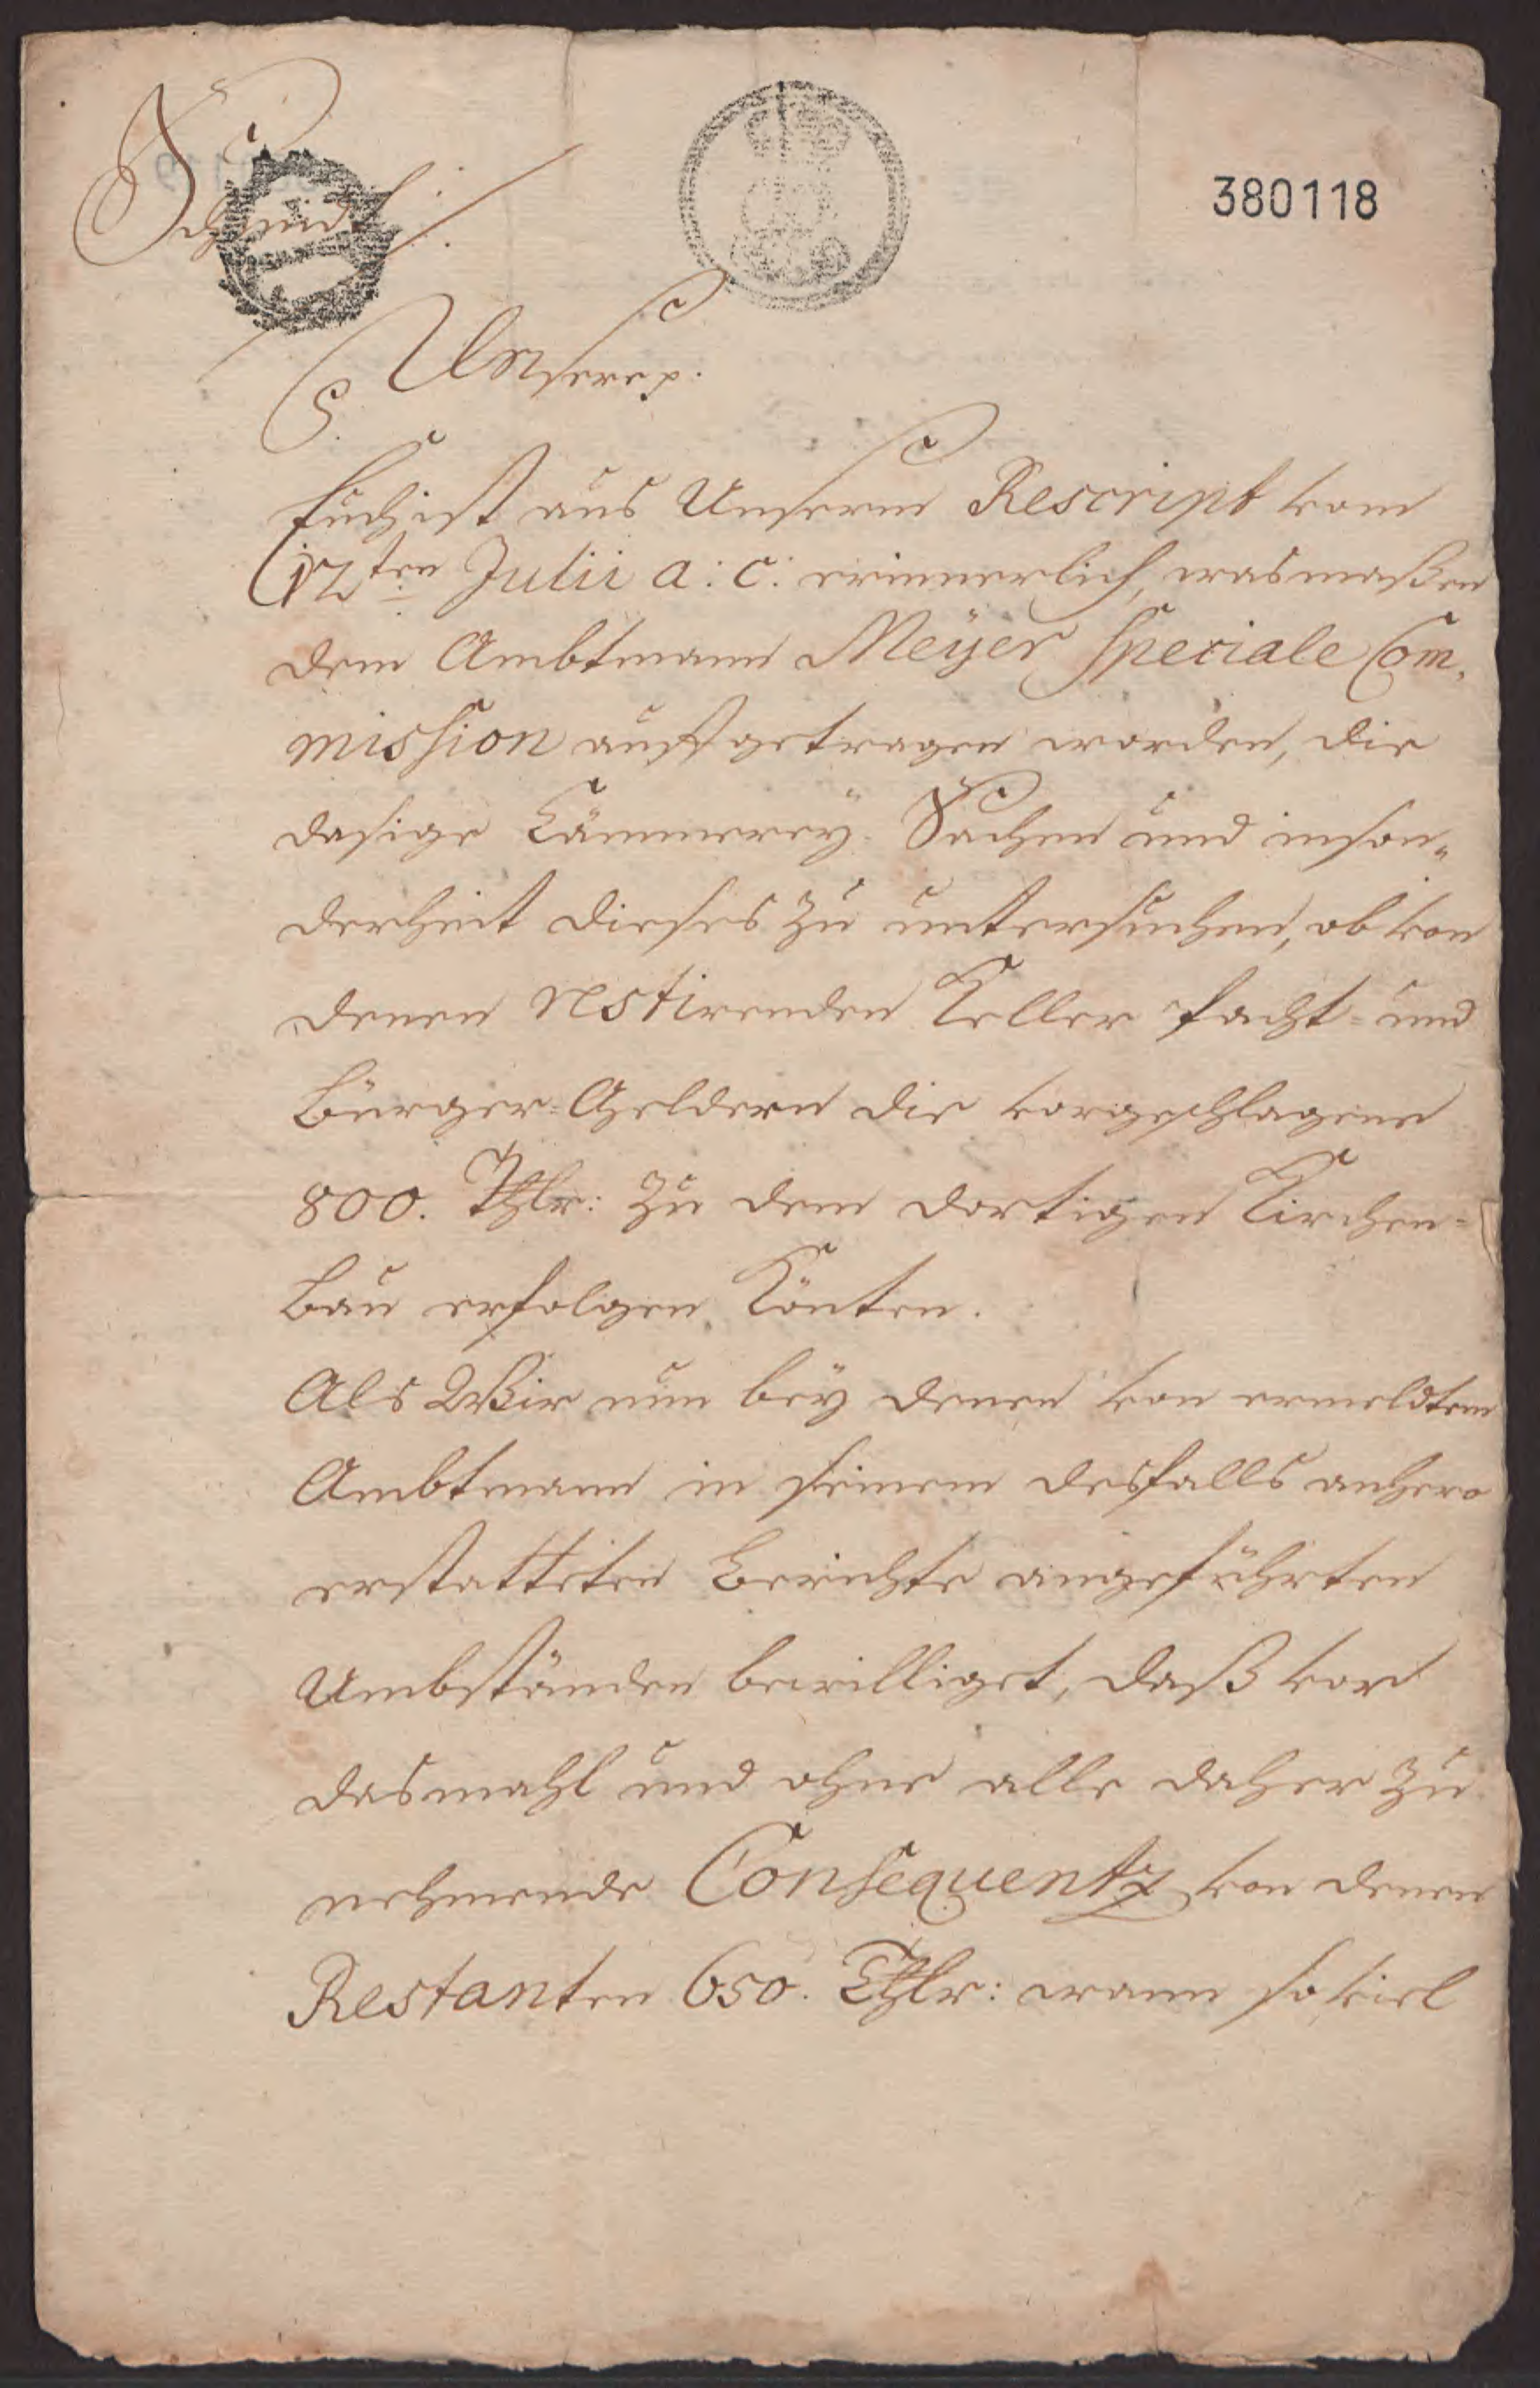 380118
Unsere p.
P.
Euch ist aus Unserm Rescript vom
17ten Julii a: c: erinnerlich, wasmaßen
dem Ambtmann Meÿer Speciale Com,
mission auffgetragen worden, die
dasige Cämmereÿ-Sachen und inson„
derheit dieses zu untersuchen, ob von
denen restirenden Keller Pacht- und
Bürger-Geldern die vorgeschlagene
800. Thlr: zu dem dortigen Kirchen-
Bau erfolgen könten.
Als Wir nun beÿ denen von ermeldtem
Ambtmann in seinem desfalls anhero
erstatteten Berichte angeführten
Umbständen bewilliget, daß vor
dasmahl und ohne alle daher zu
nehmende Consequentz von denen
Restanten 650. Thlr: wann so viel